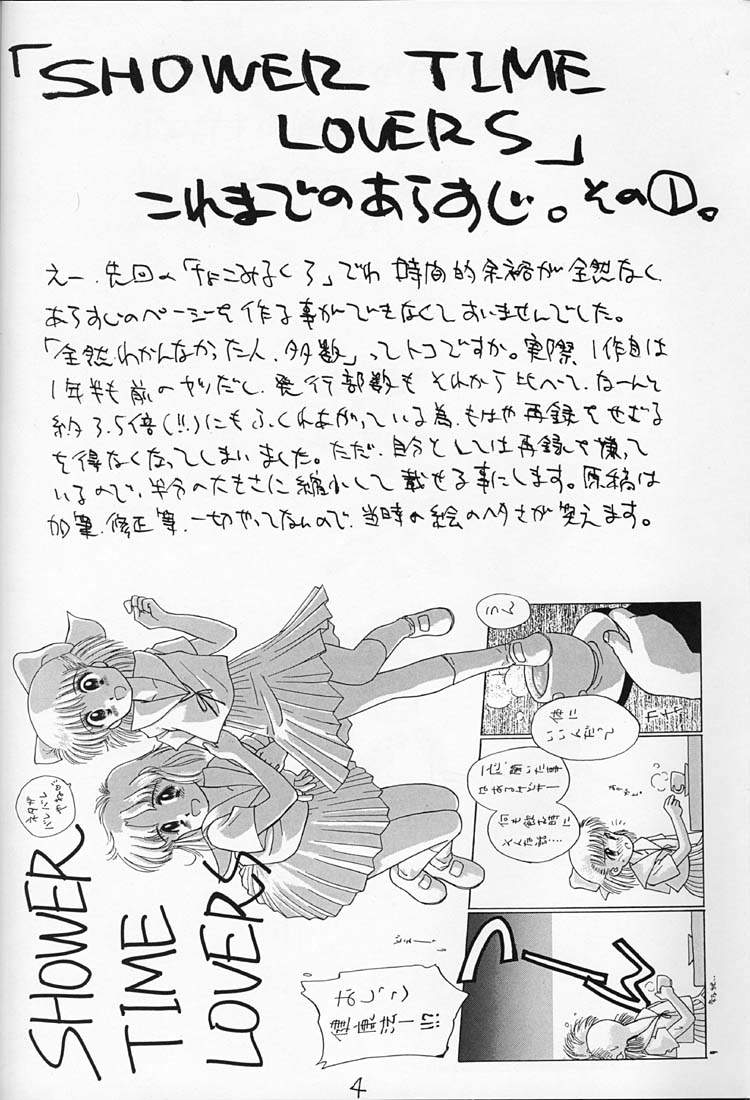 「SHOWER TIME
LOVERS」
これまでのあらすじ。その①。
えー、先回の「ちょこみるくろ」でわ 時間的余裕が全然なく、
あらすじのページを作る事ができなくてすいませんでした。
「全然わかんなかった人、多数」ってトコですか。実際 1作目は
1年半も前のヤツだし、発行部数も それから比べて、なーんと
約3.5倍(!!)にもふくれあがっている為、もはや再録をせざる
を得なくなってしまいました。ただ、自分としては再録を嫌って
いるので、半分の大きさに縮小して載せる事にします。原稿は
加筆、修正等、一切やってないので、当時の絵のヘタさが笑えます。
体に
いいんだって
何も飲む時に
つーん
健康法ー!!
SHOWER
TIME
LOVERS
4